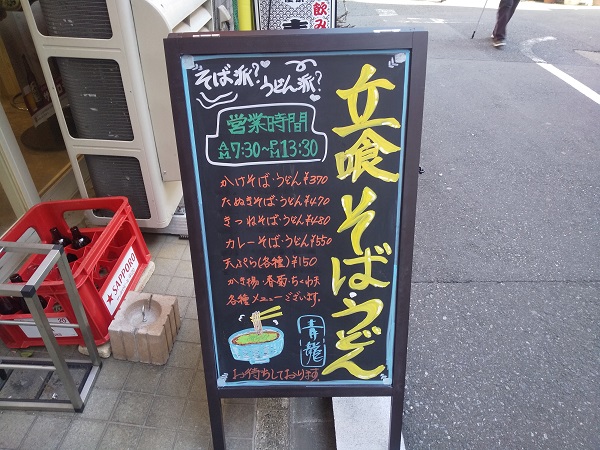 飲み
そば派?うどん派?
営業時間
AM7:30~PM13:30
立喰そば・うどん
かけそば・うどん¥370
たぬきそば・うどん¥470
きつねそば・うどん¥480
カレーそば・うどん¥550
天ぷら(各種)¥150
かき揚・春菊・ちくわ天
各種メニューございます。
青龍
お待ちしております
SAPPORO